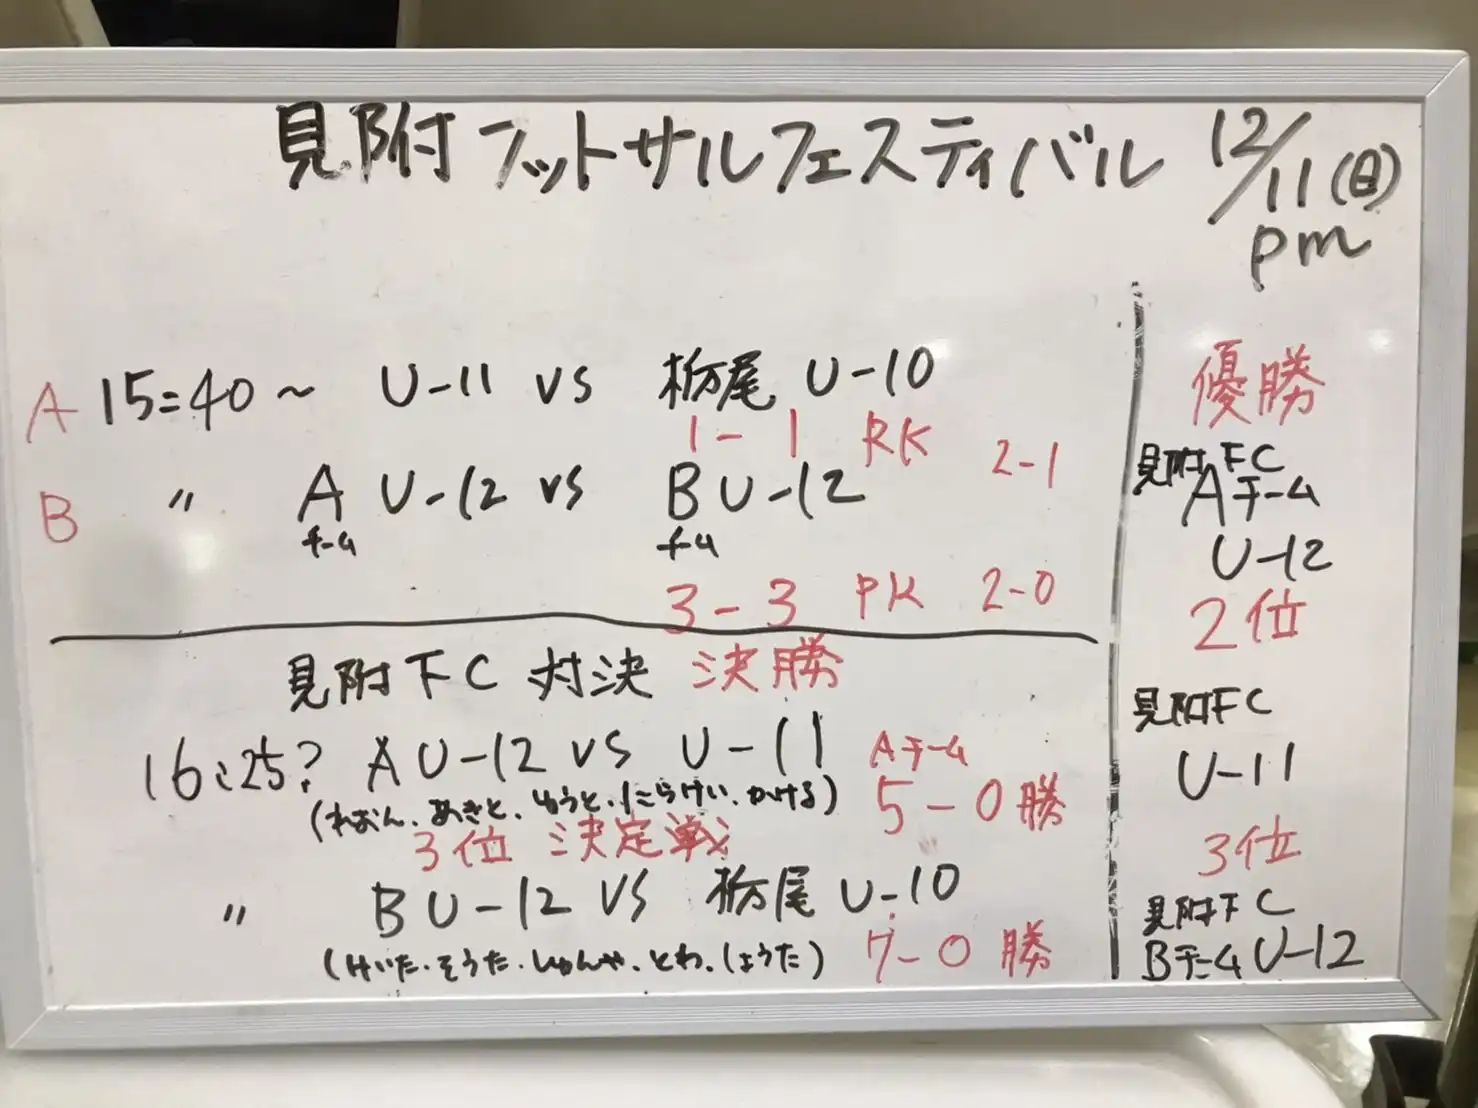 見附フットサルフェスティバル 12/11(日)
pm
A 15:40～ U-11 vs 栃尾 U-10
1-1 PK 2-1
B 〃 A U-12 vs B U-12
チーム チーム
3-3 PK 2-0
見附FC 対決 決勝
16:25? A U-12 vs U-11 Aチーム
(れおん、あきと、ゆうと、こうけい、かける) 5-0 勝
3位 決定戦
〃 B U-12 vs 栃尾 U-10
(けいた、そうた、しゅんや、とわ、しょうた) 7-0 勝
優勝
見附FC
Aチーム
U-12
2位
見附FC
U-11
3位
見附FC
Bチーム U-12